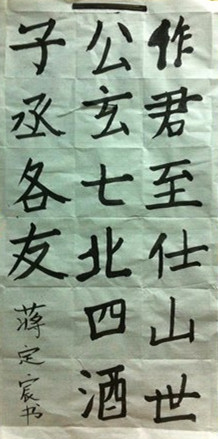 作君至仕山世
公玄七北四酒
子丞各友
蒋定宸书